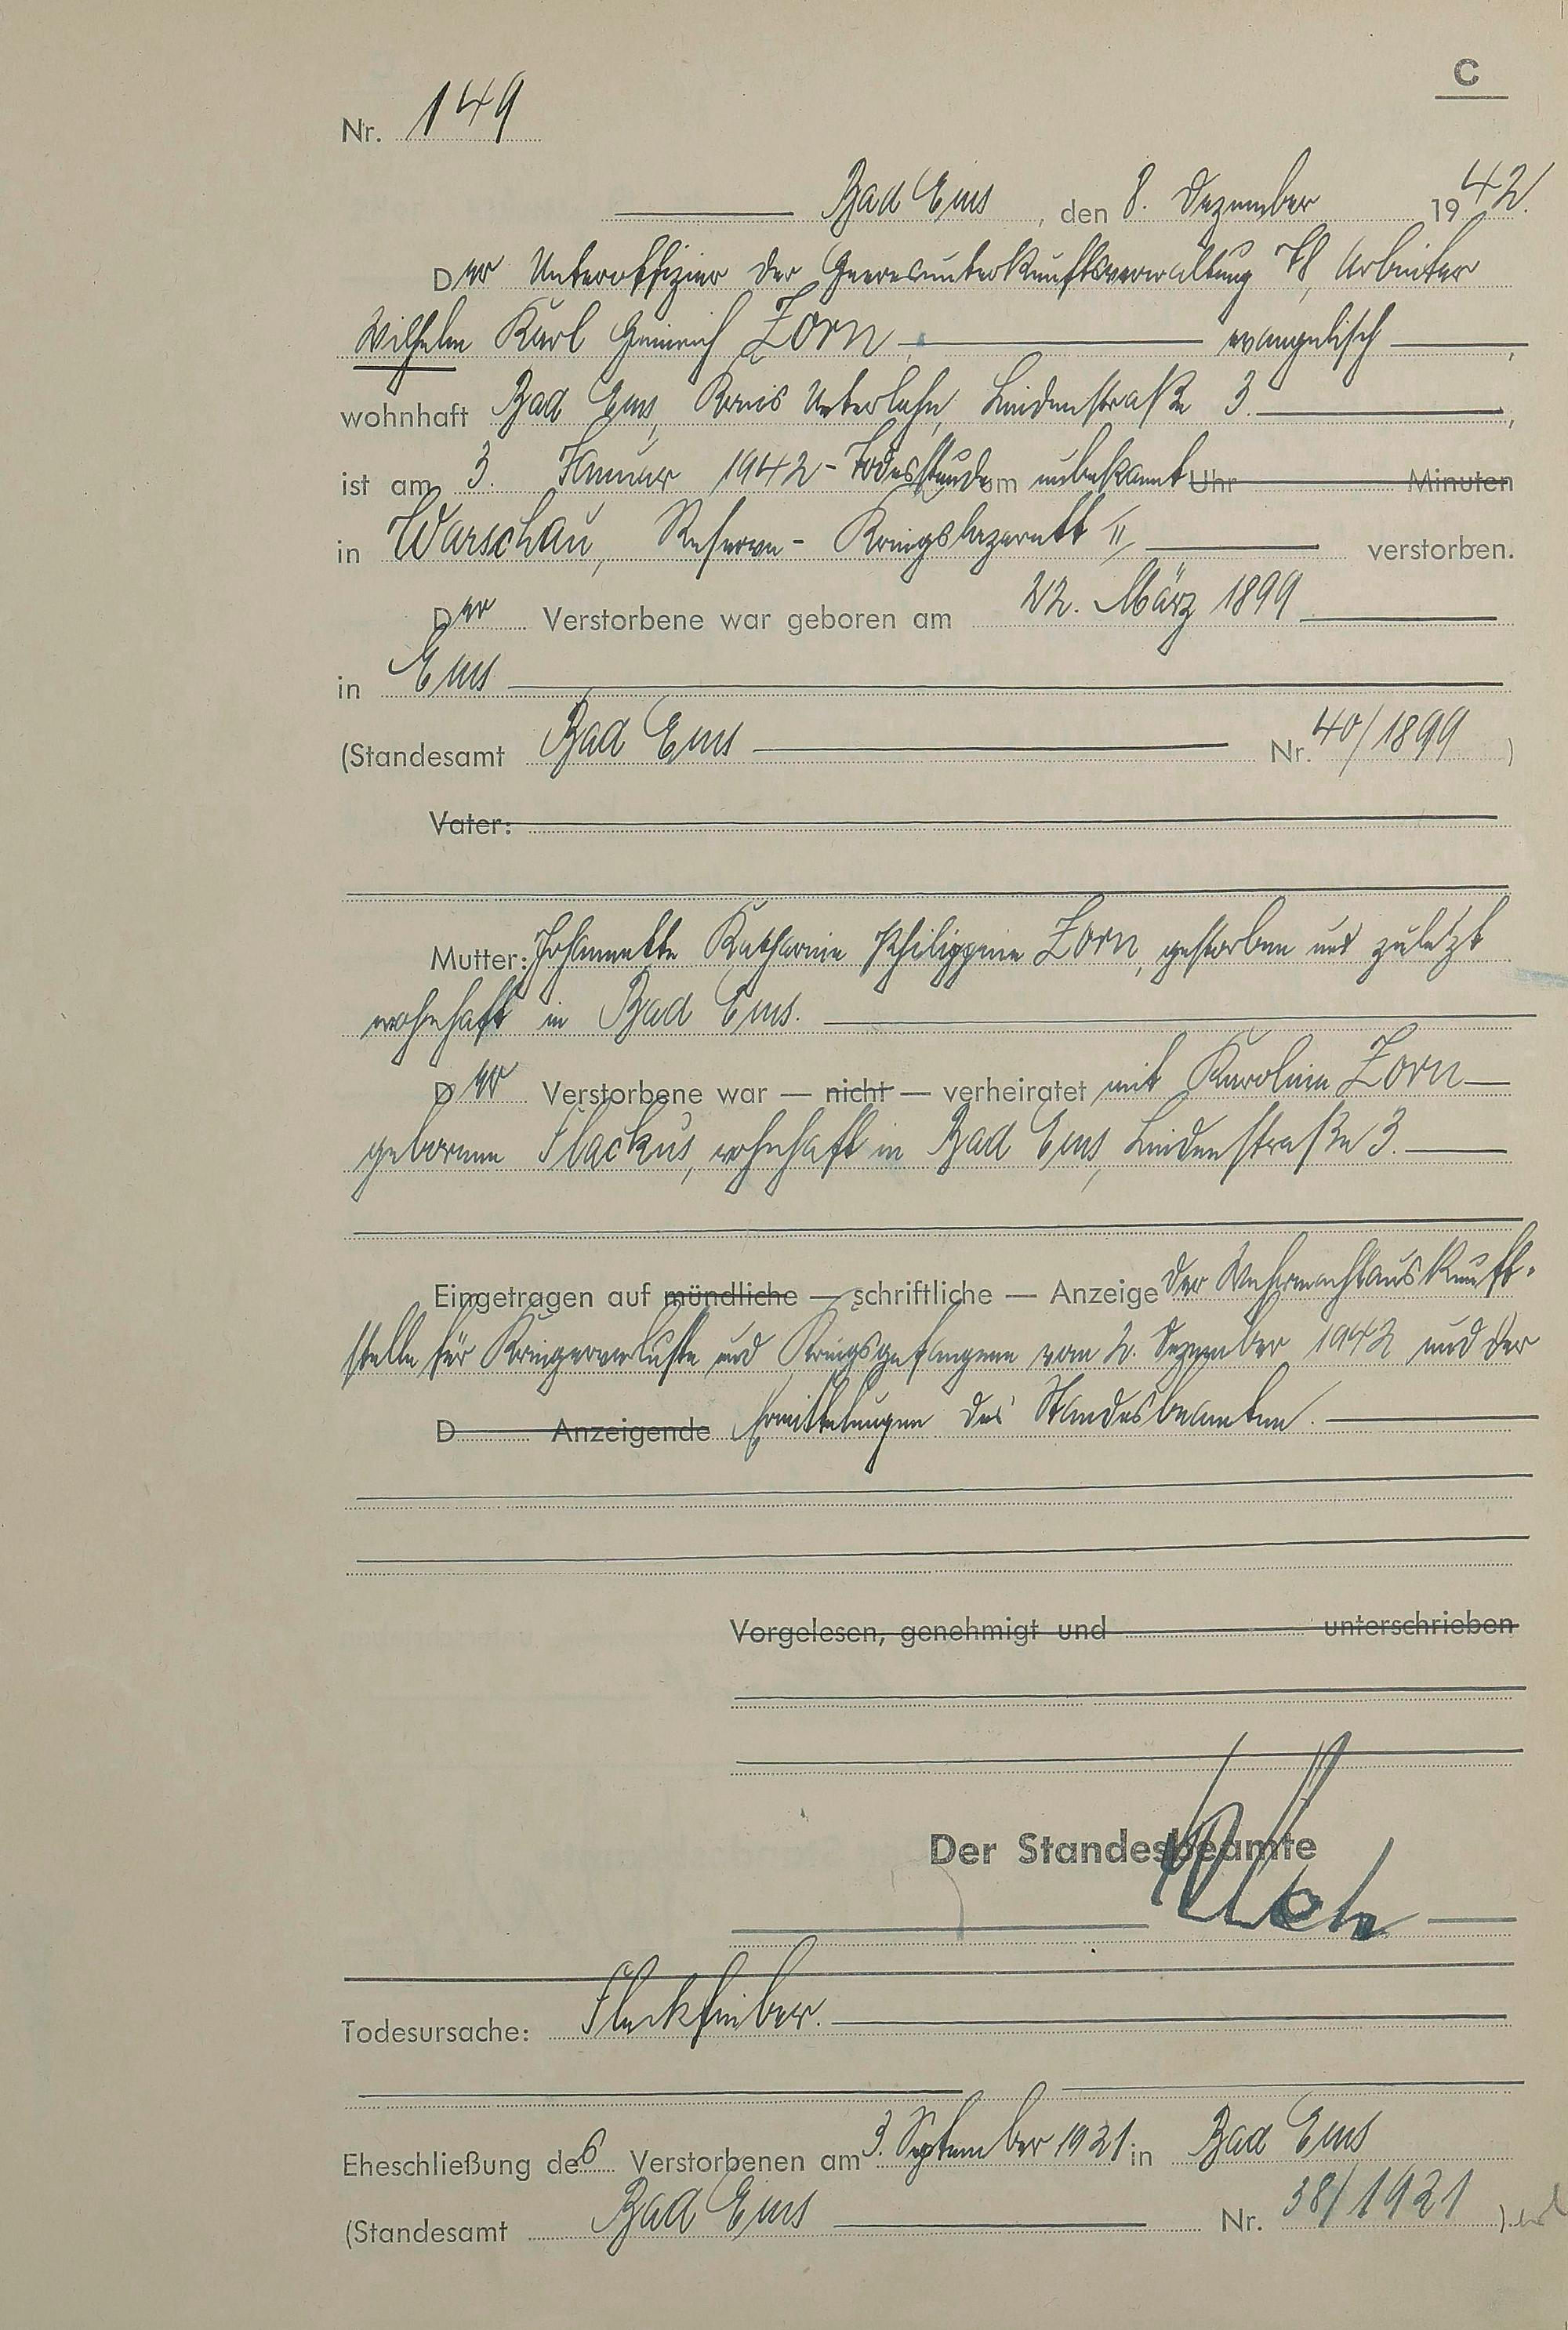 C
Nr. 149
Bad Ems, den 8. Dezember 1942.
Der Unteroffizier der Heeresunterkunftsverwaltung 78, Arbeiter
Wilhelm Karl Heinrich Zorn evangelisch,
wohnhaft Bad Ems, Kreis Unterlahn, Lindenstraße 3.,
ist am 3. Januar 1942 - Todesstunde um unbekannt Uhr Minuten
in Warschau, Reserve-Kriegslazarett II, verstorben.
Der Verstorbene war geboren am 22. März 1899
in Ems
(Standesamt Bad Ems Nr. 40/1899)
Vater:
Mutter: Johannette Katharine Philippine Zorn, gestorben und zuletzt
wohnhaft in Bad Ems.
Der Verstorbene war — nicht — verheiratet mit Karoline Zorn
geborene Flackus, wohnhaft in Bad Ems, Lindenstraße 3.
Eingetragen auf mündliche — schriftliche — Anzeige der Wehrmachtauskunft-
stelle für Kriegerverluste und Kriegsgefangene vom 2. Dezember 1942 und der
D Anzeigende Ermittelungen des Standesbeamten.
Vorgelesen, genehmigt und unterschrieben
Der Standesbeamte
Todesursache: Fleckfieber.
Eheschließung des Verstorbenen am 3. September 1921 in Bad Ems
(Standesamt Bad Ems Nr. 38/1921)